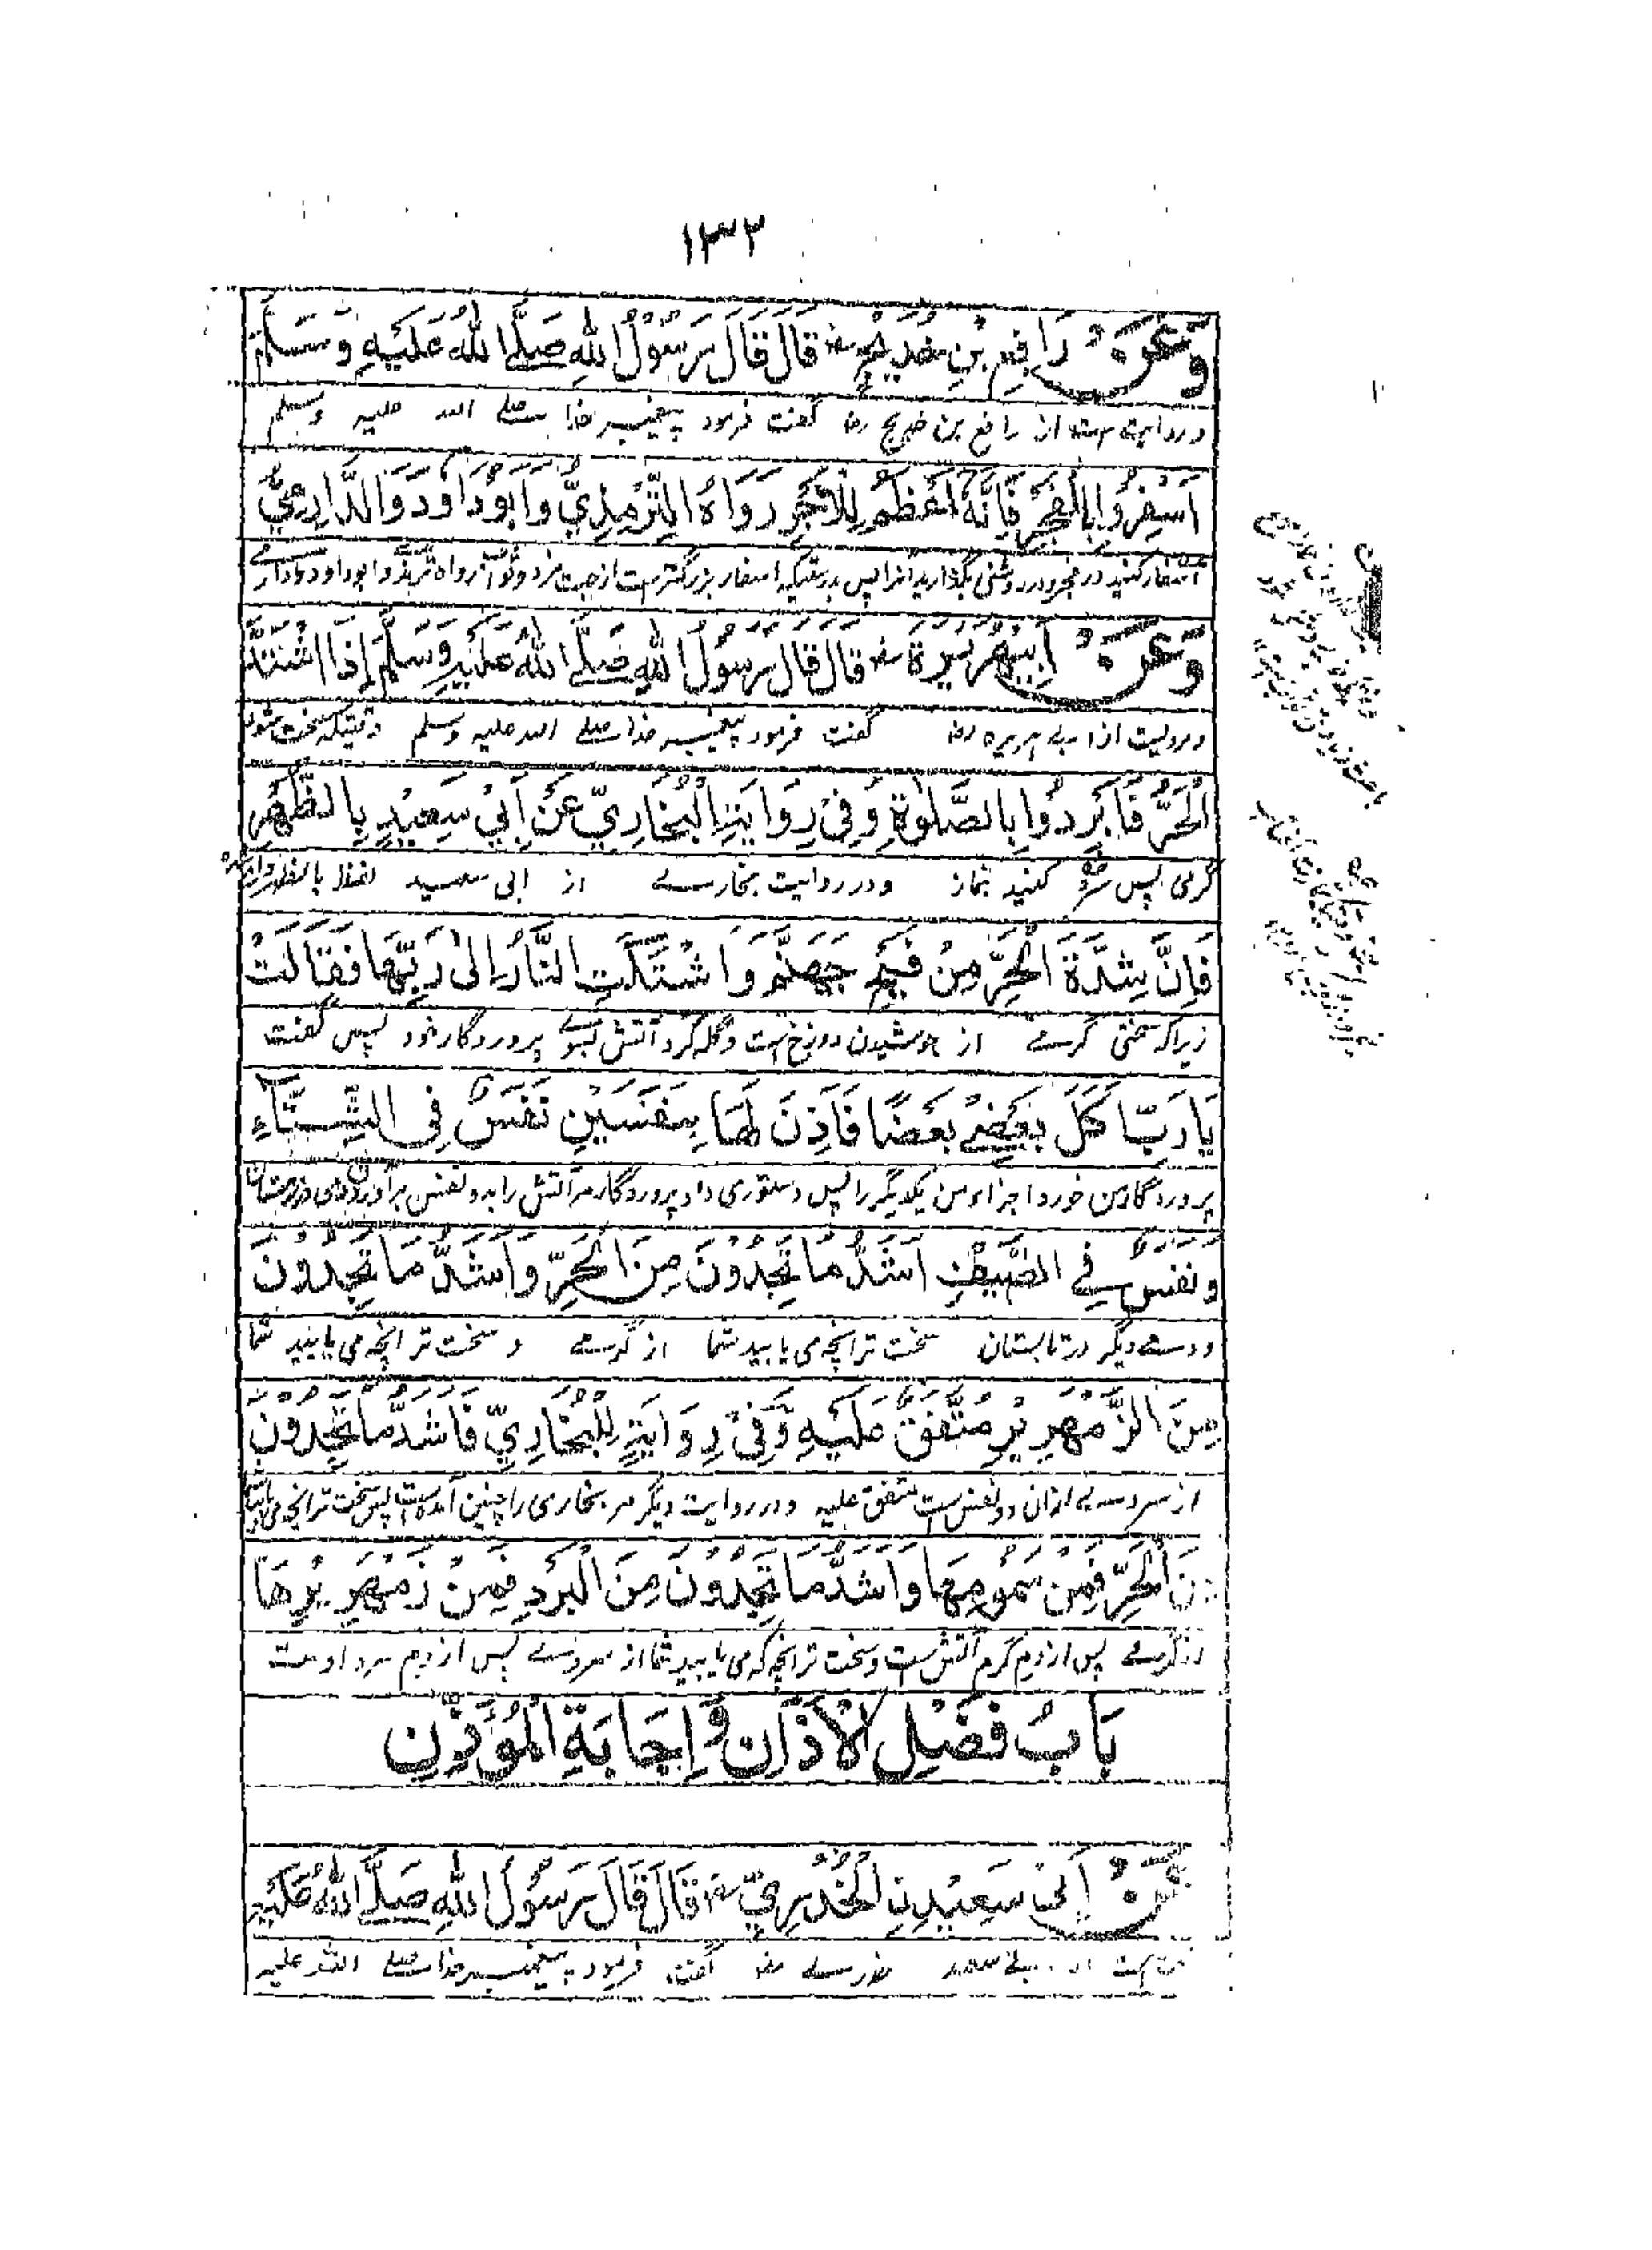 ١٣٢
وَعَنْ رَافِعِ بْنِ خَدِيْجٍ رضہ قَالَ قَالَ رَسُوْلُ اللهِ صَلَّى اللهُ عَلَيْهِ وَسَلَّمَ
و روایت ست از رافع بن خدیج رضہ گفت فرمود پیغمبر خدا صلے اللہ علیہ وسلم
اَسْفِرُوْا بِالْفَجْرِ فَاِنَّهُ اَعْظَمُ لِلْاَجْرِ رَوَاهُ التِّرْمِذِيُّ وَاَبُوْدَاوٗدَ وَالدَّارِمِيُّ
اسفار کنید در فجر و در روشنی بگذارید انرا پس بدرستیکہ اسفار بزرگتر ست از جهت مزد و ثواب رواه ترمذے و ابوداود و دارمے
وَعَنْ اَبِيْ هُرَيْرَةَ رضہ قَالَ قَالَ رَسُوْلُ اللهِ صَلَّى اللهُ عَلَيْهِ وَسَلَّمَ اِذَا اشْتَدَّ
و مرویست از ابے ہریرہ رضہ گفت فرمود پیغمبر خدا صلے اللہ علیہ وسلم وقتیکہ سخت شود
الْحَرُّ فَاَبْرِدُوْا بِالصَّلٰوةِ وَفِيْ رِوَايَةِ الْبُخَارِيِّ عَنْ اَبِيْ سَعِيْدٍ بِالظُّهْرِ
گرمی پس سرد کنید نماز و در روایت بخارے از ابی سعید لفظ بالظهر
فَاِنَّ شِدَّةَ الْحَرِّ مِنْ فَيْحِ جَهَنَّمَ وَاشْتَكَتِ النَّارُ اِلٰى رَبِّهَا فَقَالَتْ
زیرا کہ سختی گرمے از جوشیدن دوزخ ست و گلہ کرد آتش بسوے پروردگار خود پس گفت
يَارَبِّ اَكَلَ بَعْضِيْ بَعْضًا فَاَذِنَ لَهَا بِنَفَسَيْنِ نَفَسٌ فِى الشِّتَآءِ
پروردگار من خورد اجزاء من یکدیگر را پس دستوری داد پروردگار مر آتش را بدو نفس
وَنَفَسٌ فِي الصَّيْفِ اَشَدُّ مَا تَجِدُوْنَ مِنَ الْحَرِّ وَاَشَدُّ مَا تَجِدُوْنَ
و دمے دیگر در تابستان سخت تر انچہ می یابید شما از گرمے و سخت تر انچہ می یابید شما
مِنَ الزَّمْهَرِيْرِ مُتَّفَقٌ عَلَيْهِ وَفِيْ رِوَايَةٍ لِلْبُخَارِيِّ فَاَشَدُّ مَا تَجِدُوْنَ
از سردے از ان دو نفس ست متفق علیہ و در روایت دیگر مر بخاری را چنین آمده ست پس سخت تر انچہ می یابید
مِنَ الْحَرِّ فَمِنْ سَمُوْمِهَا وَاَشَدُّ مَا تَجِدُوْنَ مِنَ الْبَرْدِ فَمِنْ زَمْهَرِيْرِهَا
از گرمے پس از دم گرم آتش ست و سخت تر انچہ کہ می یابید شما از سردے پس از دم سرد اوست
بَابُ فَضْلِ الْاَذَانِ وَاِجَابَةِ الْمُؤَذِّنِ
عَنْ اَبِيْ سَعِيْدِنِ الْخُدْرِيِّ رضہ قَالَ قَالَ رَسُوْلُ اللهِ صَلَّى اللهُ عَلَيْهِ
ست خدرے رضہ گفت فرمود پیغمبر خدا صلے اللہ علیہ